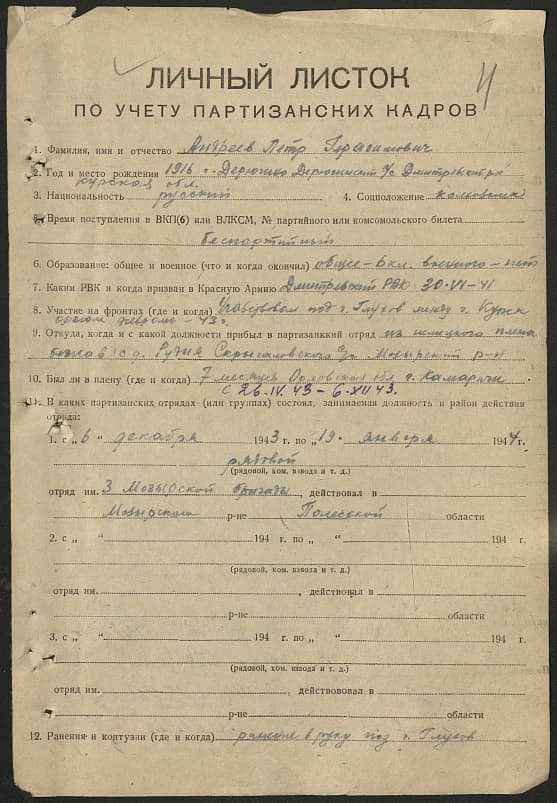 4
ЛИЧНЫЙ ЛИСТОК
ПО УЧЕТУ ПАРТИЗАНСКИХ КАДРОВ
1. Фамилия, имя и отчество Андреев Петр Герасимович
2. Год и место рождения 1916 г. Дерюшко с/с Дмитревский
курская обл.
3. Национальность русский 4. Соцположение колхозник
5. Время поступления в ВКП(б) или ВЛКСМ, № партийного или комсомольского билета
беспартийный
6. Образование: общее и военное (что и когда окончил) общее-6кл. военного-нет
7. Каким РВК и когда призван в Красную Армию Дмитревский РВК 30-VI-41
8. Участие на фронтах (где и когда) Участвовал под г. Глухов между г. Курск
орлом февраль-43г.
9. Откуда, когда и с какой должности прибыл в партизанский отряд из немецкого плена
бежав с д. Рудня Скрыгаловского с/с Мозырский р-н
10. Был ли в плену (где и когда) 7 месяцев Орловская обл г. Камаричи
с 26.IV.43-6.XII 43.
11. В каких партизанских отрядах (или группах) состоял, занимаемая должность и район действия
отряда:
1. с „6 " декабря 1943 г. по „19" января 1944 г.
рядовой
(рядовой, ком. взвода и т. д.)
отряд им. 3 Мозырской бригады, действовал в
Мозырского р-не Полесской области
2. с „ " 194 г. по „ " 194 г.
(рядовой, ком. взвода и т. д.)
отряд им. , действовал в
р-не области
3. с „ " 194 г. по „ " 194 г.
(рядовой, ком. взвода и т. д.)
отряд им. , действововал в
р-не области
12. Ранения и контузии (где и когда) ранение в руку под г. Глухов